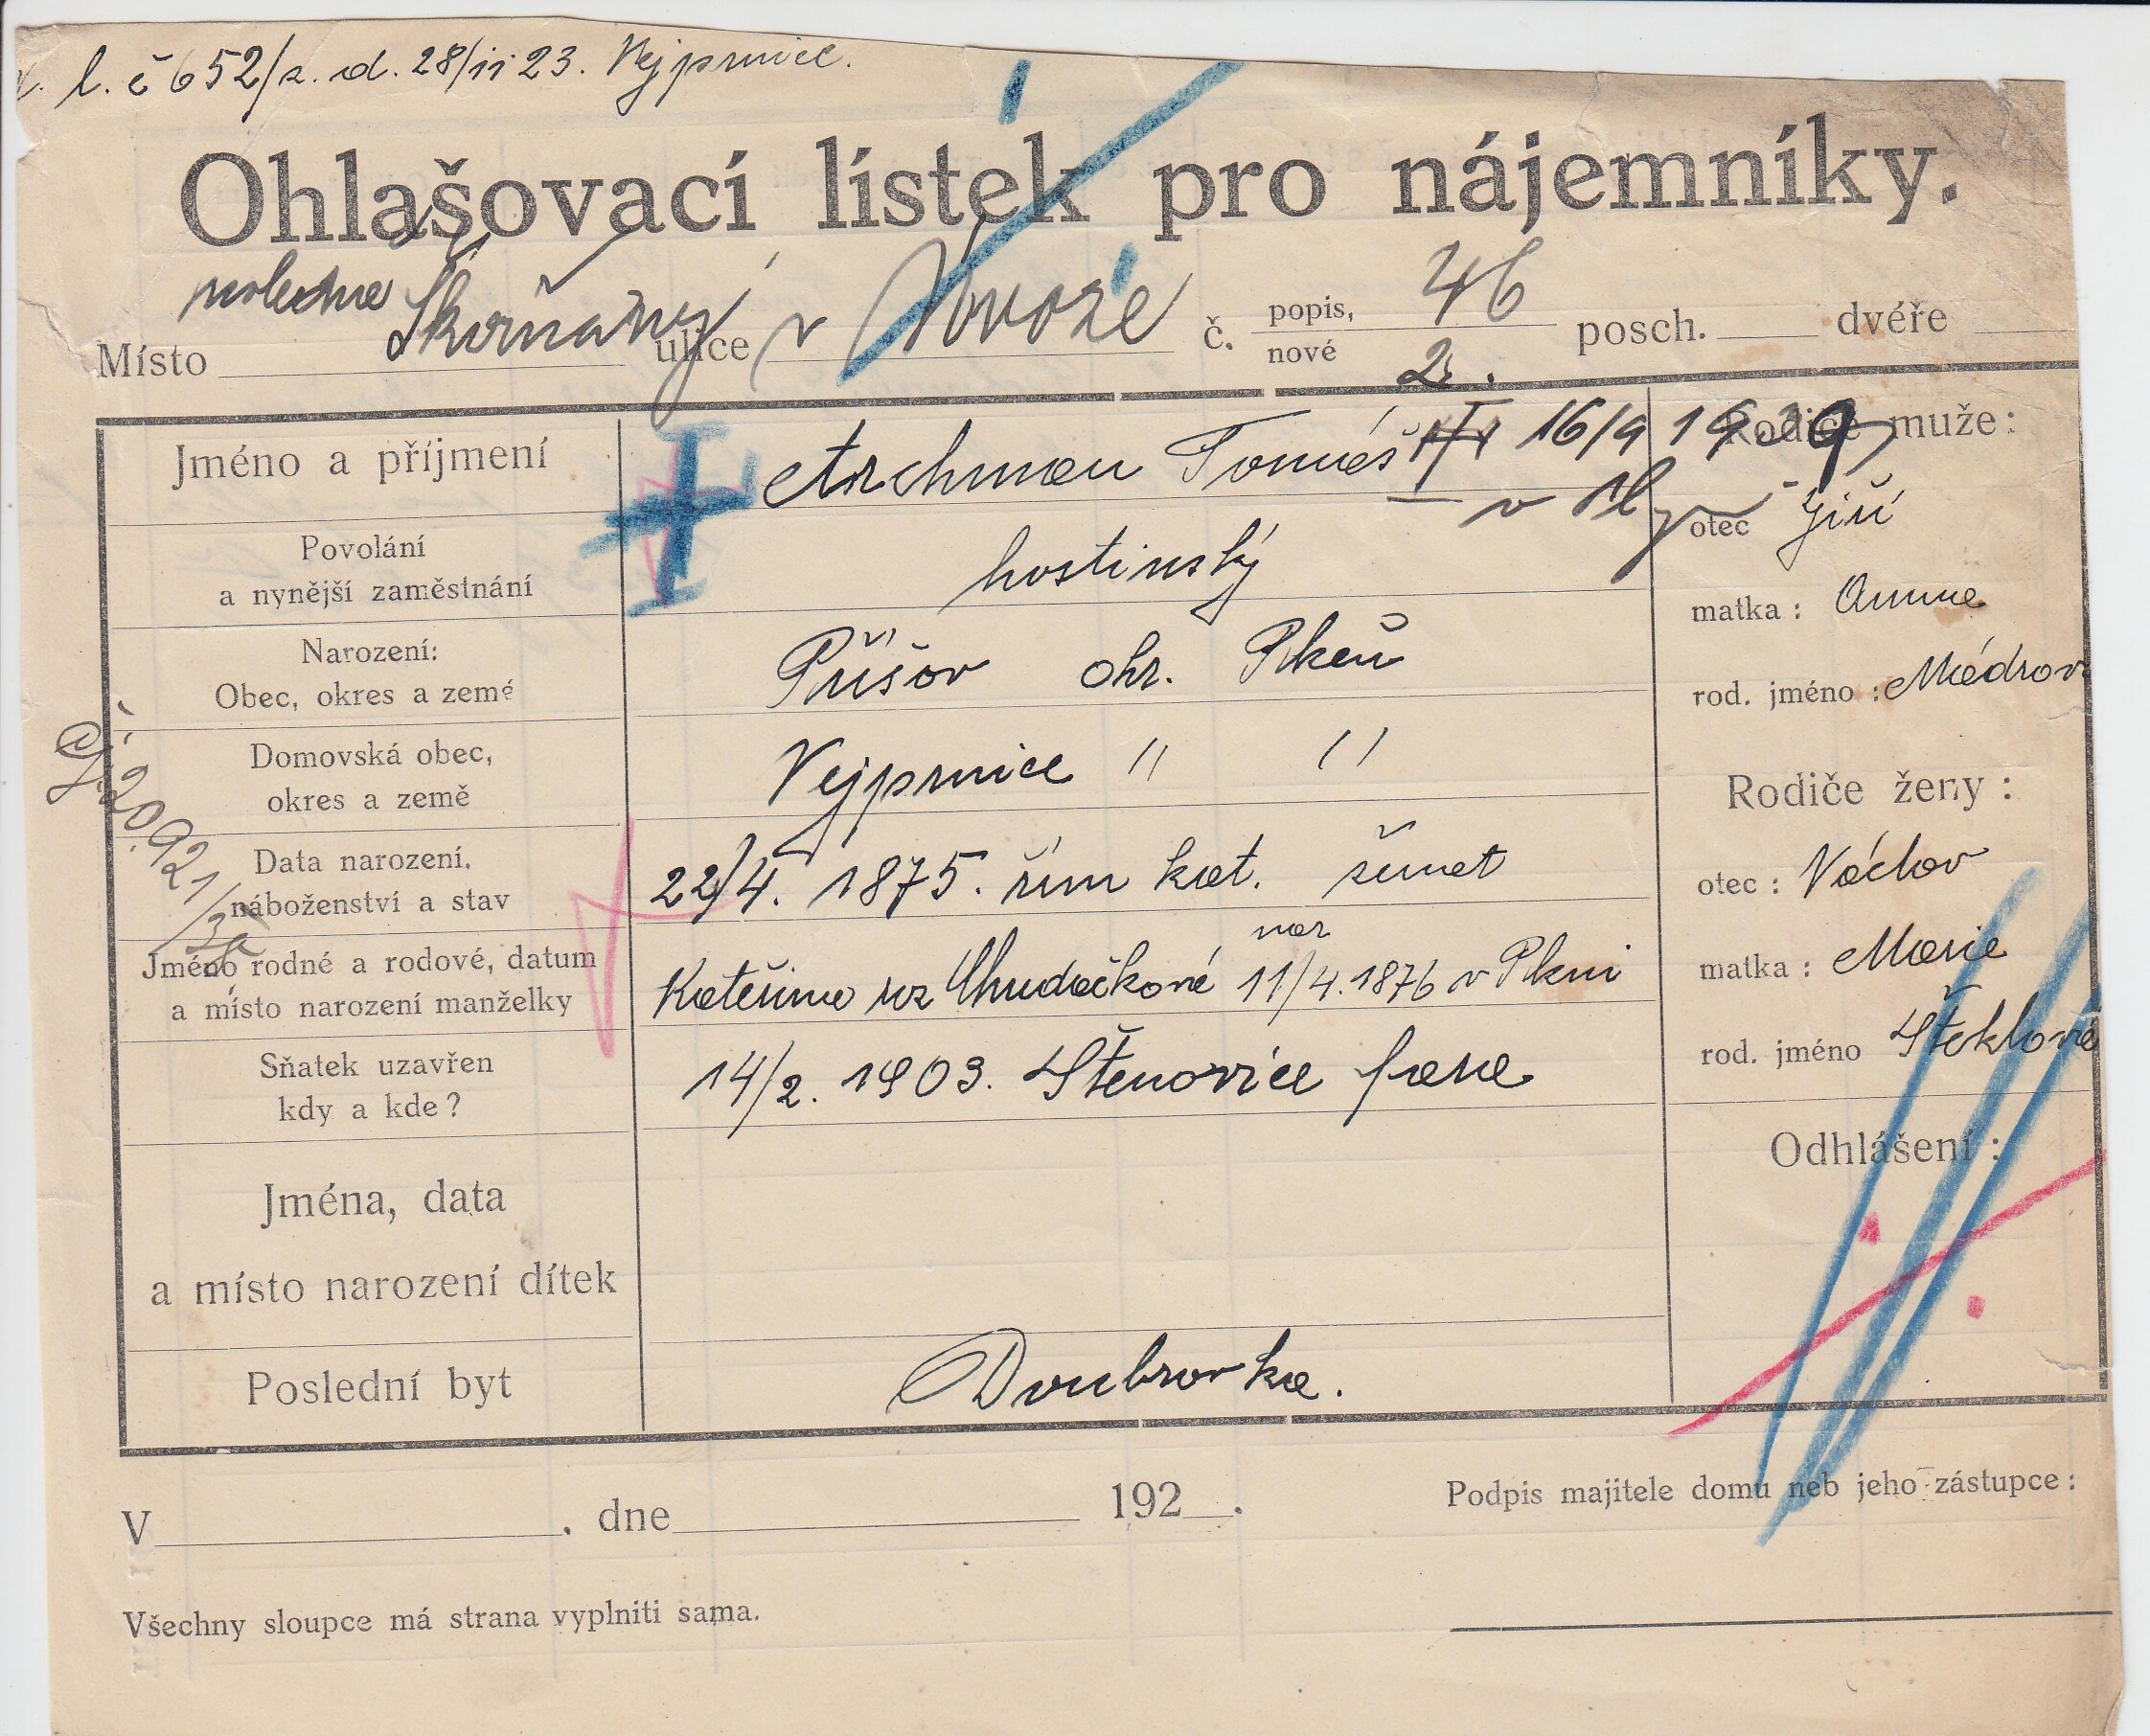 l. č 652/2. d. 28/11 23. Vejprnice.
Ohlašovací lístek pro nájemníky.
Místo Skvrňany ulice v Úvoze č. popis, 46 posch. dvéře
nové 2.
Jméno a příjmení Archman Tomáš 16/9 1939 Rodiče muže:
v Pl
otec Jiří
Povolání hostinský
a nynější zaměstnání
matka: Anna
Narození: Příšov okr. Plzeň
Obec, okres a země
rod. jméno: Mádrov
Domovská obec, Vejprnice " "
okres a země
Rodiče ženy:
Data narození, 22/4. 1875. řím kat. ženat
náboženství a stav
otec: Václav
Čj. 20.921/3a
Jméno rodné a rodové, datum nar
a místo narození manželky Kateřina roz Chudáčková 11/4. 1876 v Plzni
matka: Marie
Sňatek uzavřen 14/2. 1903. Štěnovice fara
kdy a kde?
rod. jméno Šteklová
Odhlášení:
Jména, data
a místo narození dítek
Poslední byt Doubravka.
V , dne 192 .
Podpis majitele domu neb jeho zástupce:
Všechny sloupce má strana vyplniti sama.